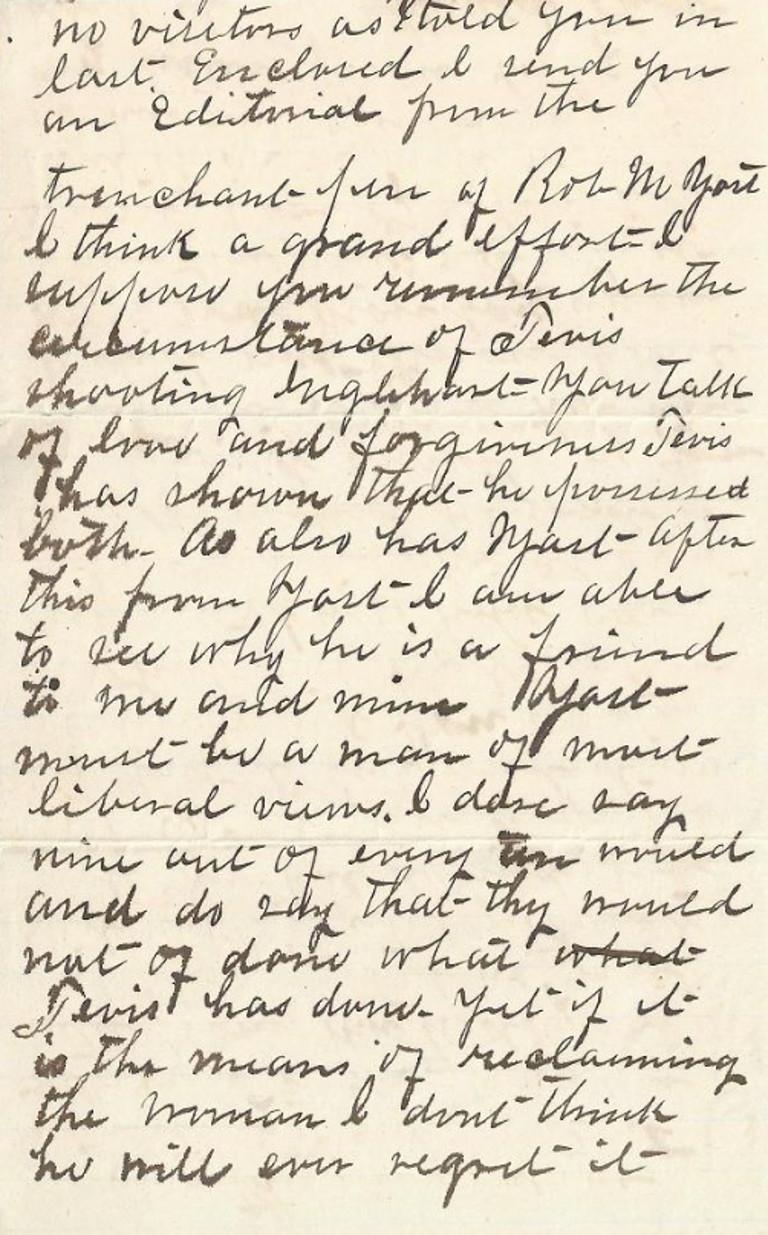 no visitors as I told you in
last. Enclosed I send you
an Editorial from the
trenchant pen of Rob M Yost
I think a grand effort I
suppose you remember the
circumstance of Tevis
shooting You talk
of love and forgiveness Tevis
has shown that he possessed
both. As also has Yost After
this from Yost I am able
to see why he is a friend
to me and mine Yost
must be a man of most
liberal views. I dare say
nine out of every ten would
and do say that thy would
not of done what what
Tevis has done. Yet if it
is the means of reclaiming
the woman I dont think
he will ever regret it